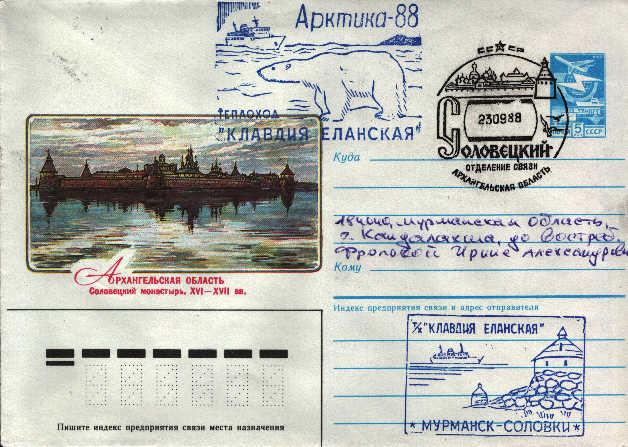 Арктика-88
ТЕПЛОХОД
"КЛАВДИЯ ЕЛАНСКАЯ"
230988
СОЛОВЕЦКИЙ
ОТДЕЛЕНИЕ СВЯЗИ
АРХАНГЕЛЬСКАЯ ОБЛАСТЬ
5 к
СССР
Куда
184040, Мурманская область,
г. Кандалакша, до Востреб
Фроловой Ирине Александровне
Кому
АРХАНГЕЛЬСКАЯ ОБЛАСТЬ
Соловецкий монастырь, XVI—XVII вв.
Индекс предприятия связи и адрес отправителя
Т/Х "КЛАВДИЯ ЕЛАНСКАЯ"
* МУРМАНСК-СОЛОВКИ *
Пишите индекс предприятия связи места назначения